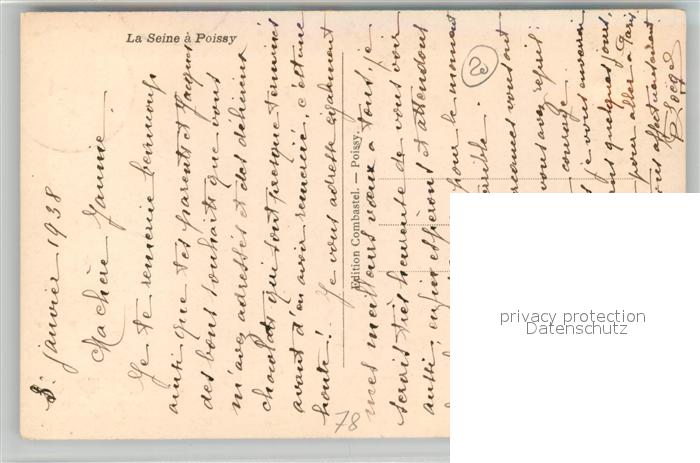 La Seine à Poissy
8. janvier 1938
Ma chère Janine.
Je te remercie beaucoup
ainsi que tes parents et Jacques
des bons souhaits que vous
m'avez adressés et des délicieux
chocolats qui sont presque terminés
avant d'en avoir remercié, c'est une
honte! Je vous adresse également
Edition Combastel. — Poissy.
mes meilleurs vœux à tous, je
serais très heureuse de vous voir
aussi, enfin espérons et attendons
pour le moment
vous avez
courage
je vous enverrai
quelques jours,
pour aller à Paris
vous affectueusement
78
privacy protection
Datenschutz